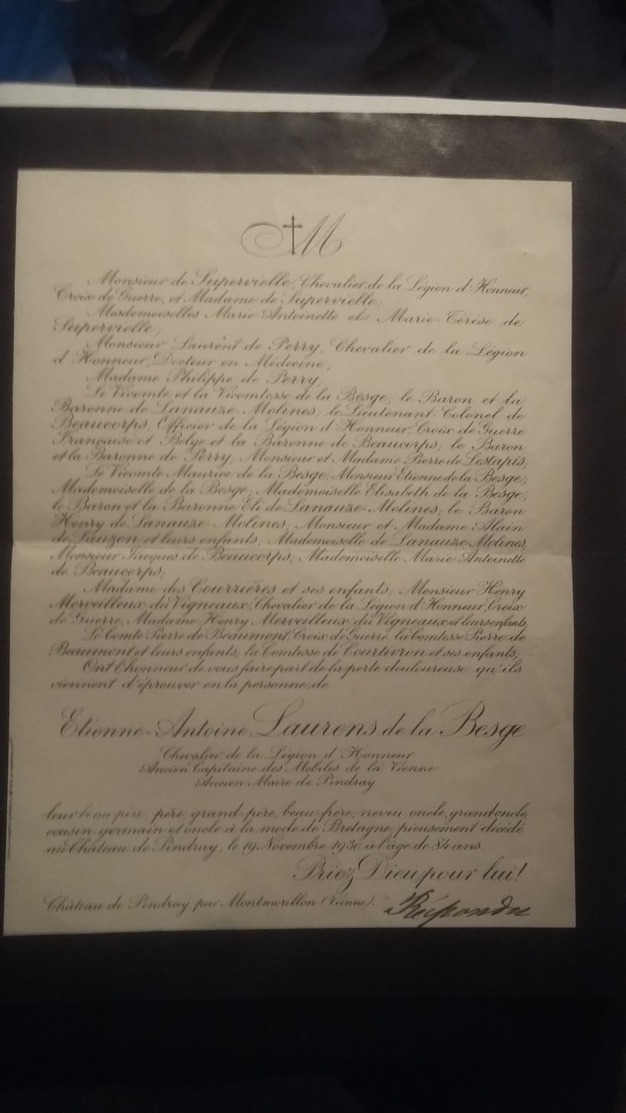 M
Monsieur de Supervielle, Chevalier de la Légion d'Honneur,
Croix de Guerre, et Madame de Supervielle;
Mesdemoiselles Marie-Antoinette et Marie-Térèse de
Supervielle;
Monsieur Laurent de Perry, Chevalier de la Légion
d'Honneur, Docteur en Médecine;
Madame Philippe de Perry;
Le Vicomte et la Vicomtesse de la Besge; le Baron et la
Baronne de Lanauze-Molines; le Lieutenant-Colonel de
Beaucorps, Officier de la Légion d'Honneur, Croix de Guerre
Française et Belge et la Baronne de Beaucorps; le Baron
et la Baronne de Perry, Monsieur et Madame Pierre de Lestapis;
Le Vicomte Maurice de la Besge, Monsieur Etienne de la Besge,
Mademoiselle de la Besge, Mademoiselle Elisabeth de la Besge;
le Baron et la Baronne Eli de Lanauze-Molines, le Baron
Henry de Lanauze-Molines, Monsieur et Madame Alain
de Lauzon et leurs enfants, Mademoiselle de Lanauze-Molines,
Monsieur Jacques de Beaucorps, Mademoiselle Marie-Antoinette
de Beaucorps;
Madame des Courrières et ses enfants; Monsieur Henry
Merveilleux du Vigneaux, Chevalier de la Légion d'Honneur, Croix
de Guerre, Madame Henry Merveilleux du Vigneaux et leurs enfants;
Le Comte Pierre de Beaumont, Croix de Guerre, la Comtesse Pierre de
Beaumont et leurs enfants; la Comtesse de Courtivron et ses enfants;
Ont l'honneur de vous faire part de la perte douloureuse qu'ils
viennent d'éprouver en la personne de
Etienne-Antoine Laurens de la Besge
Chevalier de la Légion d'Honneur
Ancien Capitaine des Mobiles de la Vienne
Ancien Maire de Pindray
leur beau-père, père, grand-père, beau-frère, neveu, oncle, grand oncle,
cousin germain et oncle à la mode de Bretagne, pieusement décédé
au Château de Pindray, le 19 Novembre 1930 à l'âge de 84 ans.
Priez Dieu pour lui!
Château de Pindray, par Montmorillon (Vienne).
Répondu